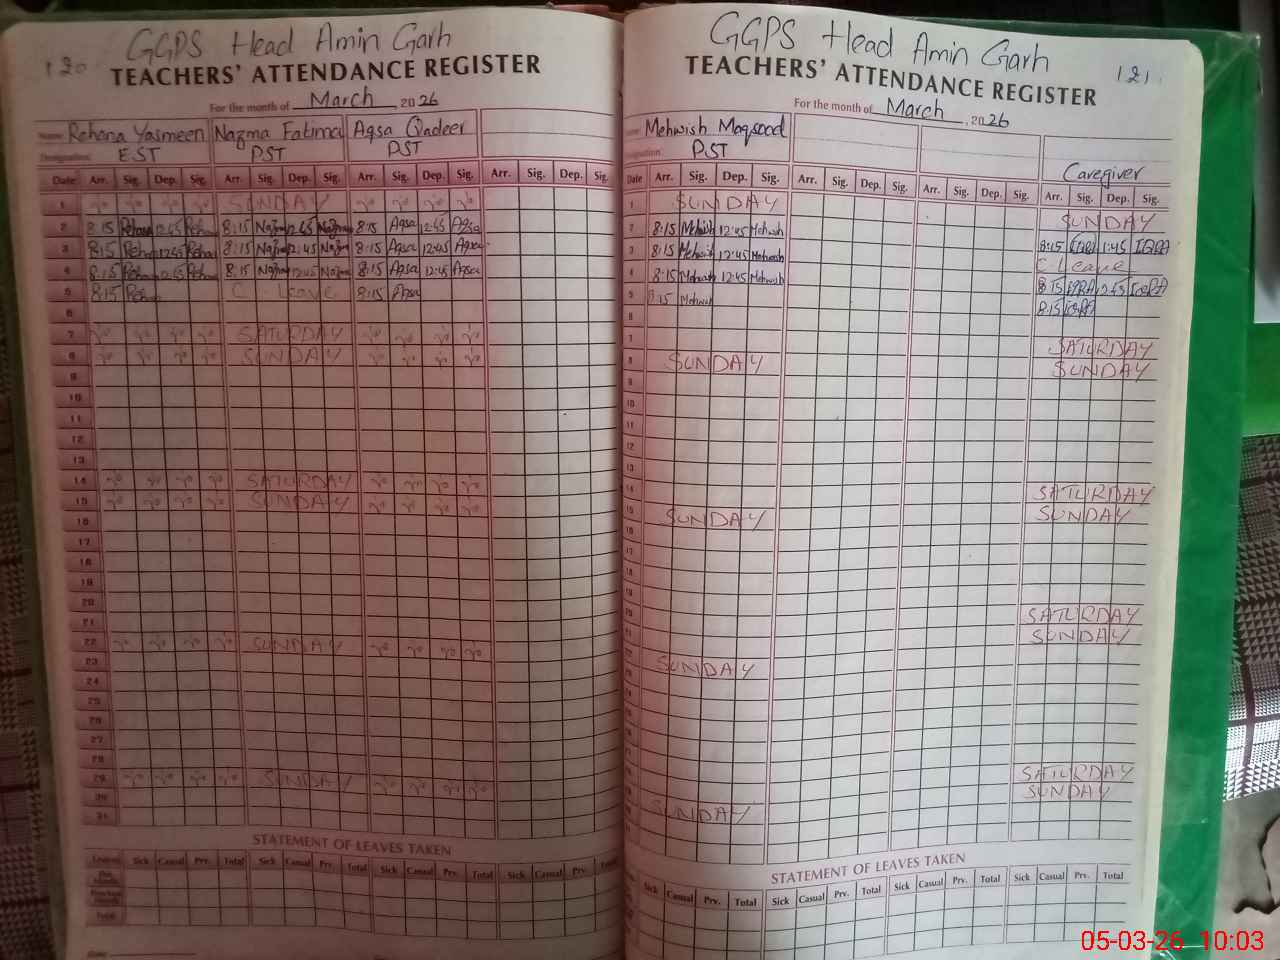 120
GGPS Head Amin Garh
TEACHERS' ATTENDANCE REGISTER
For the month of March, 2026
Name Rehana Yasmeen Nazma Fatima Aqsa Qadeer
Designation EST PST PST
Date Arr. Sig. Dep. Sig. Arr. Sig. Dep. Sig. Arr. Sig. Dep. Sig. Arr. Sig. Dep. Sig.
1 SUNDAY
2 8:15 12:45 8:15 12:45 8:15 Aqsa 12:45 Aqsa
3 8:15 12:45 8:15 12:45 8:15 Aqsa 12:45 Aqsa
4 8:15 12:45 8:15 12:45 8:15 Aqsa 12:45 Aqsa
5 8:15 C Leave 8:15 Aqsa
6
7 SATURDAY
8 SUNDAY
9
10
11
12
13
14 SATURDAY
15 SUNDAY
16
17
18
19
20
21
22 SUNDAY
23
24
25
26
27
28
29 SUNDAY
30
31
STATEMENT OF LEAVES TAKEN
Leaves Sick Casual Prv. Total Sick Casual Prv. Total Sick Casual Prv. Total Sick Casual Prv. Total
Total
GGPS Head Amin Garh
121
TEACHERS' ATTENDANCE REGISTER
For the month of March, 2026
Name Mehwish Maqsood
Designation PST
Caregiver
Date Arr. Sig. Dep. Sig. Arr. Sig. Dep. Sig. Arr. Sig. Dep. Sig. Arr. Sig. Dep. Sig.
1 SUNDAY SUNDAY
2 8:15 Mehwish 12:45 Mehwish 8:15 IQRA 1:45 IQRA
3 8:15 Mehwish 12:45 Mehwish C Leave
4 8:15 Mehwish 12:45 Mehwish 8:15 IQRA 12:45 IQRA
5 8:15 Mehwish 8:15 IQRA
6
7 SATURDAY
8 SUNDAY SUNDAY
9
10
11
12
13
14 SATURDAY
15 SUNDAY SUNDAY
16
17
18
19
20
SATURDAY
SUNDAY
SUNDAY
SATURDAY
SUNDAY
SUNDAY
STATEMENT OF LEAVES TAKEN
Sick Casual Prv. Total Sick Casual Prv. Total Sick Casual Prv. Total Sick Casual Prv. Total
05-03-26 10:03